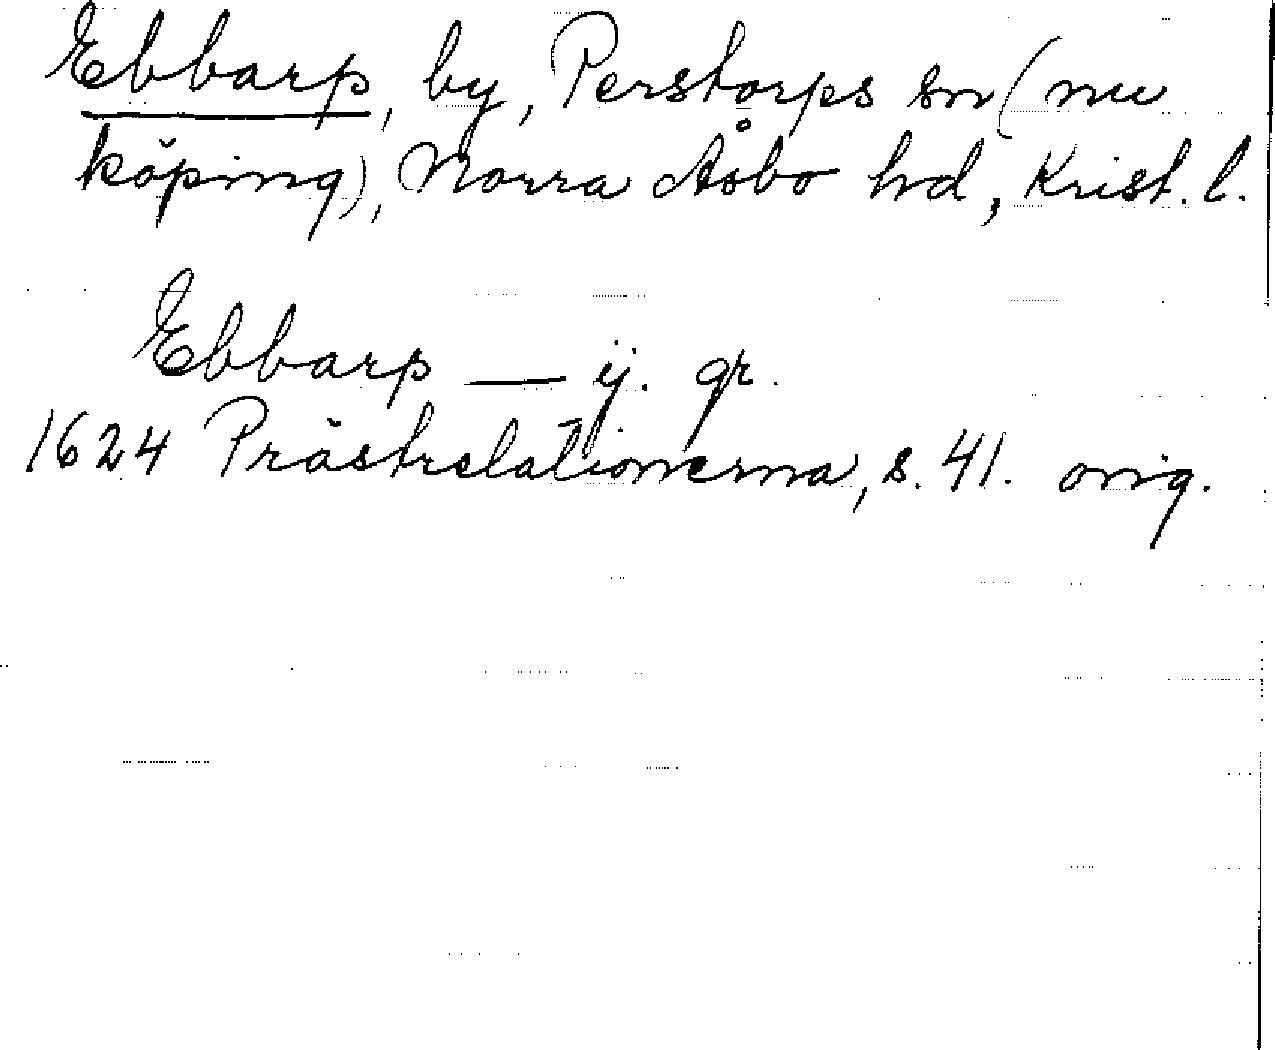 Ebbarp, by, Perstorps sn (nu
köping), Norra Åsbo hd, Krist. l.
Ebbarp — ij. gr.
1624 Prästrelationerna, s. 41. orig.